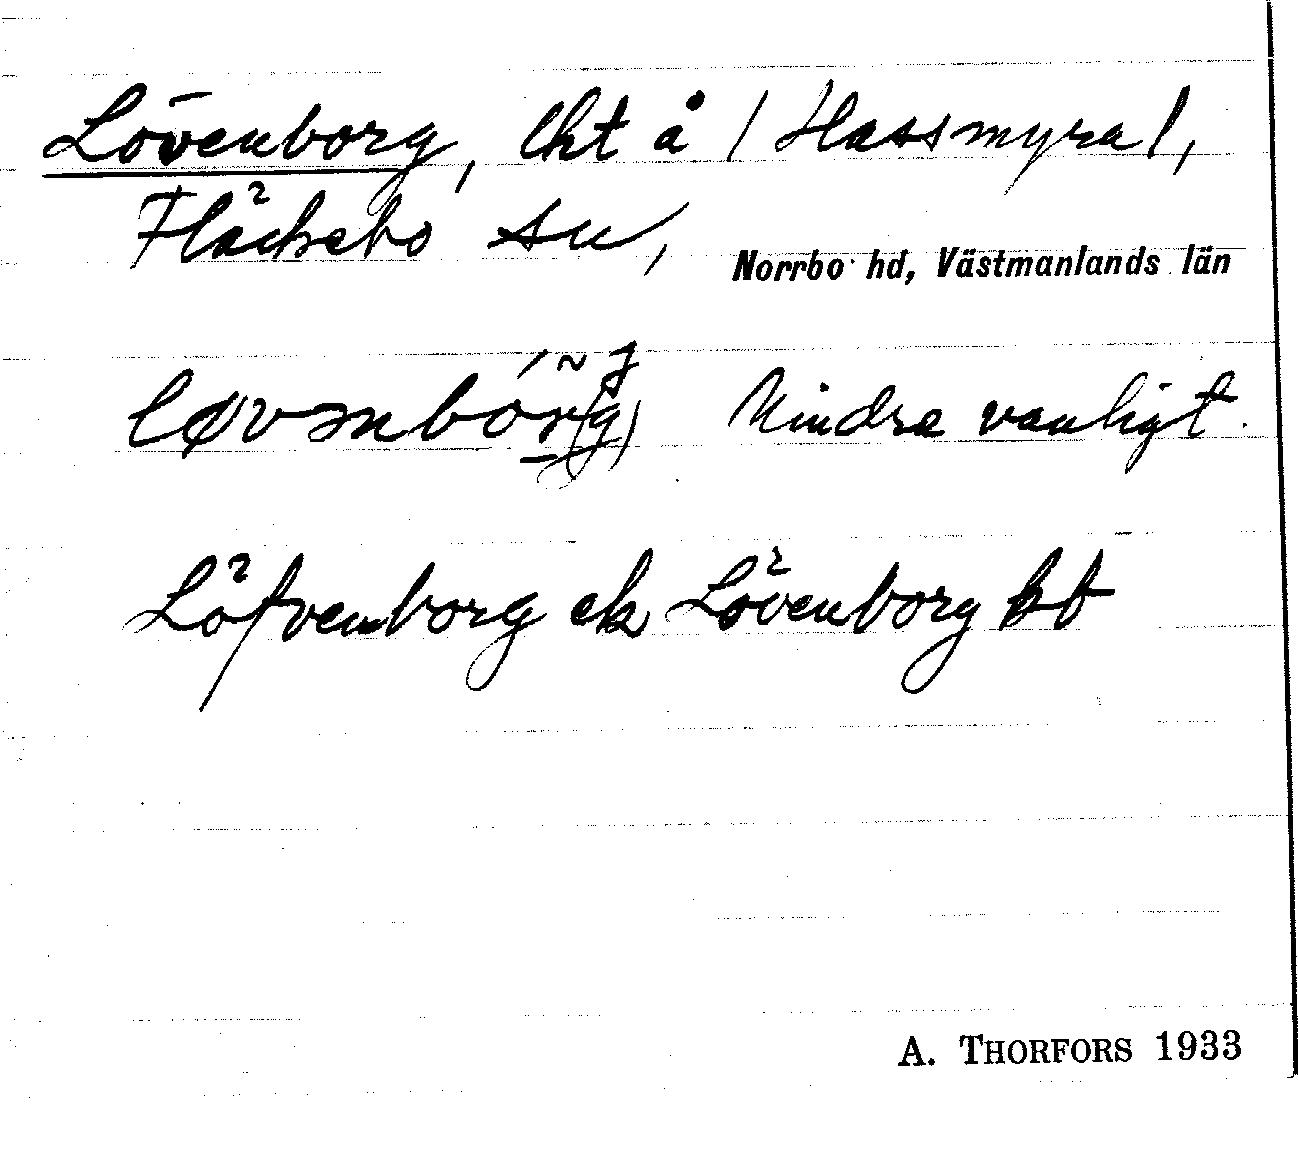 Lövenborg, lht å / Hassmyra /,
Fläckebo sn,
Norrbo hd, Västmanlands län
Mindre vanligt.
Löfvenborg ek Lövenborg
A. THORFORS 1933